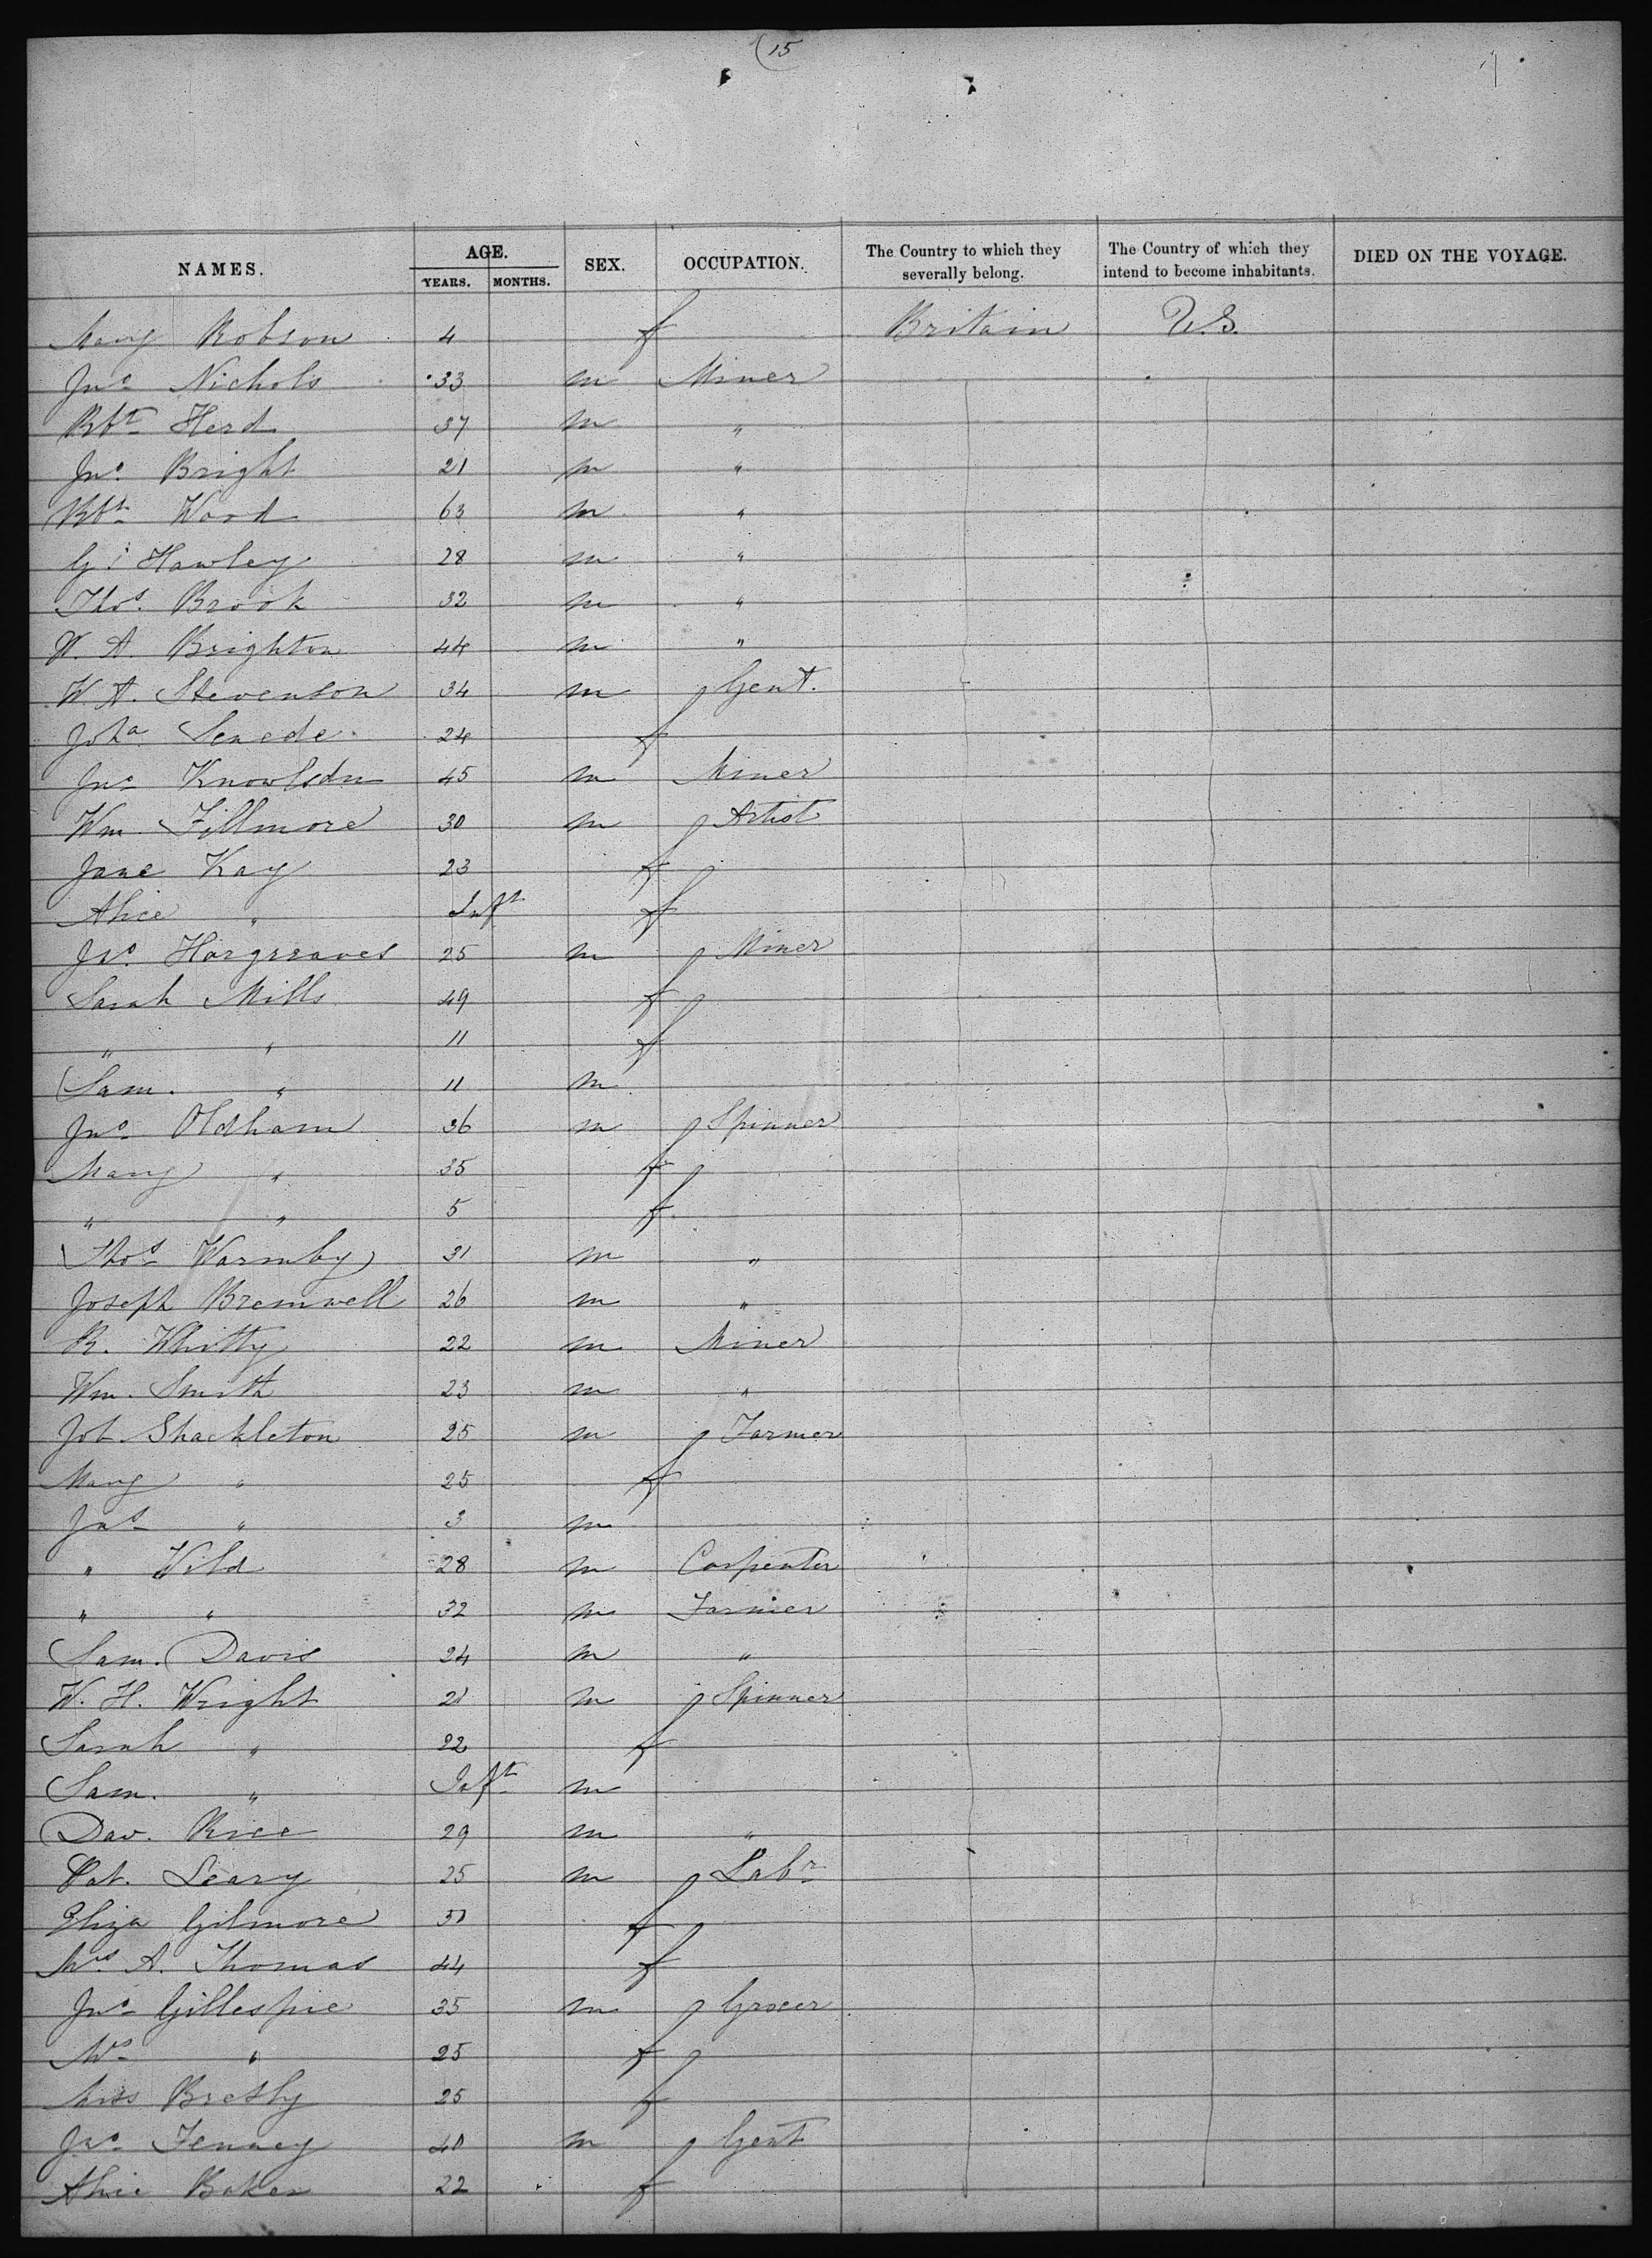 15
NAMES. AGE. YEARS. MONTHS. SEX. OCCUPATION. The Country to which they severally belong. The Country of which they intend to become inhabitants. DIED ON THE VOYAGE.
Mary Robson 4 f Britain U.S.
Jno Nichols 33 m Miner
Rbt Herd 37 m "
Jno Bright 21 m "
Rbt Wood 63 m "
G. Hawley 28 m "
Thos Brook 32 m "
W. A. Brighton 44 m "
W. A. Stevenson 34 m Gent.
Joha 24 f
Jno Knowlsdn 45 m Miner
Wm. Fillmore 30 m Artist
Jane Kay 23 f
Alice " Inft f
Jno Hargreaves 25 m Miner
Sarah Mills 49 f
" " 11 f
Sam. " 11 m
Jno Oldham 36 m Spinner
Mary " 35 f
" " 5 f
Thos Warmby 31 m "
Joseph Bremwell 26 m "
R. Whitty 22 m Miner
Wm. Smith 23 m "
Job Shackleton 25 m Farmer
Mary " 25 f
Jas " 3 m
" Wild 28 m Carpenter
" " 32 m Farmer
Sam. Davis 24 m "
W. H. Wright 21 m Spinner
Sarah " 22 f
Sam. " Inft m
Dav. Rice 29 m "
Pat. Leary 25 m Labr
Eliza Gilmore 30 f
Mrs A. Thomas 44 f
Jno Gillespie 35 m Grocer
Mrs " 25 f
Miss 25 f
Jno Fenney 40 m Gent
Alice Baker 22 f